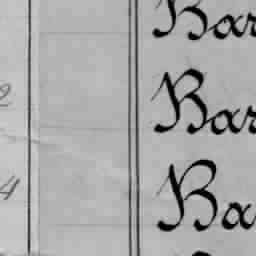 Bar
2 Bar
4 Ba